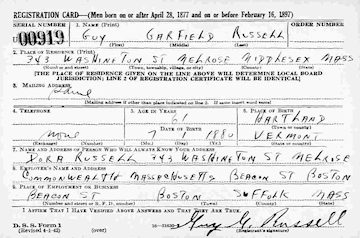 REGISTRATION CARD—(Men born on or after April 28, 1877 and on or before February 16, 1897)
SERIAL NUMBER 1. NAME (Print) ORDER NUMBER
U 00919 GUY GARFIELD RUSSELL
(First) (Middle) (Last)
2. PLACE OF RESIDENCE (Print)
343 WASHINGTON ST MELROSE MIDDLESEX MASS
(Number and street) (Town, township, village, or city) (County) (State)
[THE PLACE OF RESIDENCE GIVEN ON THE LINE ABOVE WILL DETERMINE LOCAL BOARD
JURISDICTION; LINE 2 OF REGISTRATION CERTIFICATE WILL BE IDENTICAL]
3. MAILING ADDRESS
Same
[Mailing address if other than place indicated on line 2. If same insert word same]
4. TELEPHONE 5. AGE IN YEARS 6. PLACE OF BIRTH
61 HARTLAND
DATE OF BIRTH (Town or county)
none 7 1880 VERMONT
(Exchange) (Number) (Mo.) (Day) (Yr.) (State or country)
7. NAME AND ADDRESS OF PERSON WHO WILL ALWAYS KNOW YOUR ADDRESS
DORA RUSSELL 343 WASHINGTON ST MELROSE
8. EMPLOYER'S NAME AND ADDRESS
COMMONWEALTH MASSACHUSETTS BEACON ST BOSTON
9. PLACE OF EMPLOYMENT OR BUSINESS
BEACON ST BOSTON SUFFOLK MASS
(Number and street or R. F. D. number) (Town) (County) (State)
I AFFIRM THAT I HAVE VERIFIED ABOVE ANSWERS AND THAT THEY ARE TRUE.
D. S. S. Form 1
(Revised 4-1-42) (over) Guy G. Russell
(Registrant's signature)